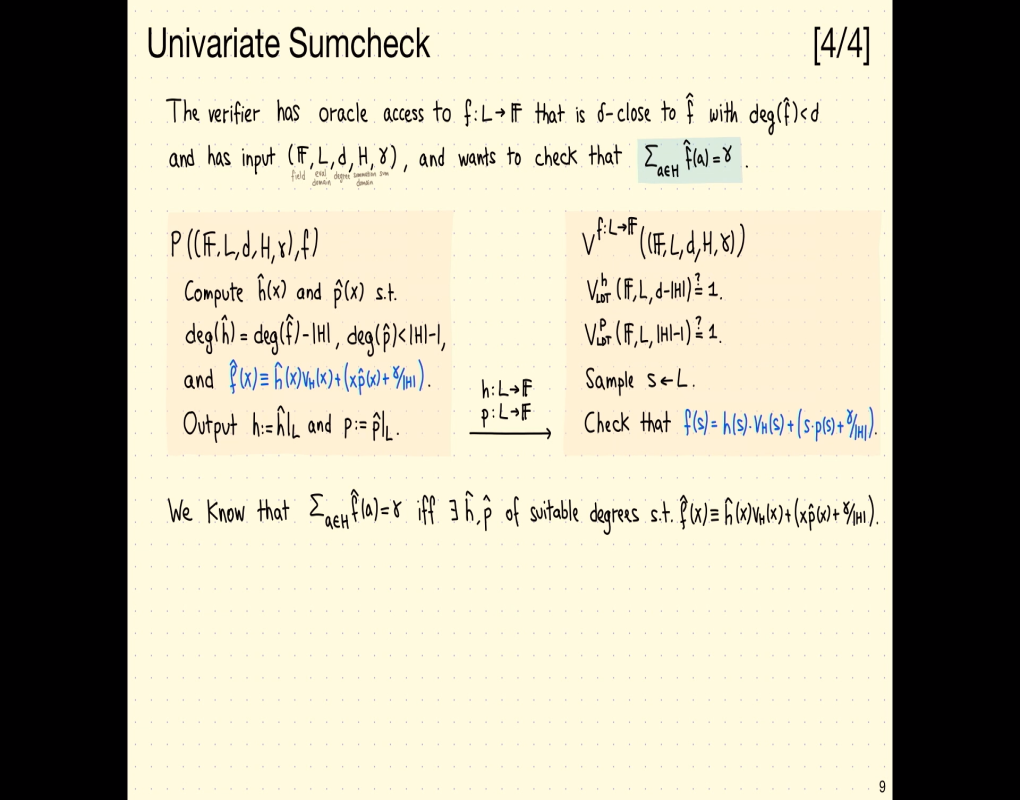 Univariate Sumcheck [4/4]
The verifier has oracle access to f: L→𝔽 that is δ-close to f̂ with deg(f̂)<d
and has input (𝔽, L, d, H, γ), and wants to check that Σ_{a∈H} f̂(a)=γ.
field eval domain degree summation domain sum
P((𝔽,L,d,H,γ),f)
Compute ĥ(x) and p̂(x) s.t.
deg(ĥ)=deg(f̂)-|H|, deg(p̂)<|H|-1,
and f̂(x)≡ĥ(x)v_H(x)+(xp̂(x)+γ/|H|).
Output h:=ĥ|_L and p:=p̂|_L.
h: L→𝔽
p: L→𝔽
V^{f:L→𝔽}((𝔽,L,d,H,γ))
V_{LDT}^h(𝔽,L,d-|H|)≟1.
V_{LDT}^p(𝔽,L,|H|-1)≟1.
Sample s←L.
Check that f(s)=h(s)·v_H(s)+(s·p(s)+γ/|H|).
We know that Σ_{a∈H} f̂(a)=γ iff ∃ ĥ,p̂ of suitable degrees s.t. f̂(x)≡ĥ(x)v_H(x)+(xp̂(x)+γ/|H|).
9